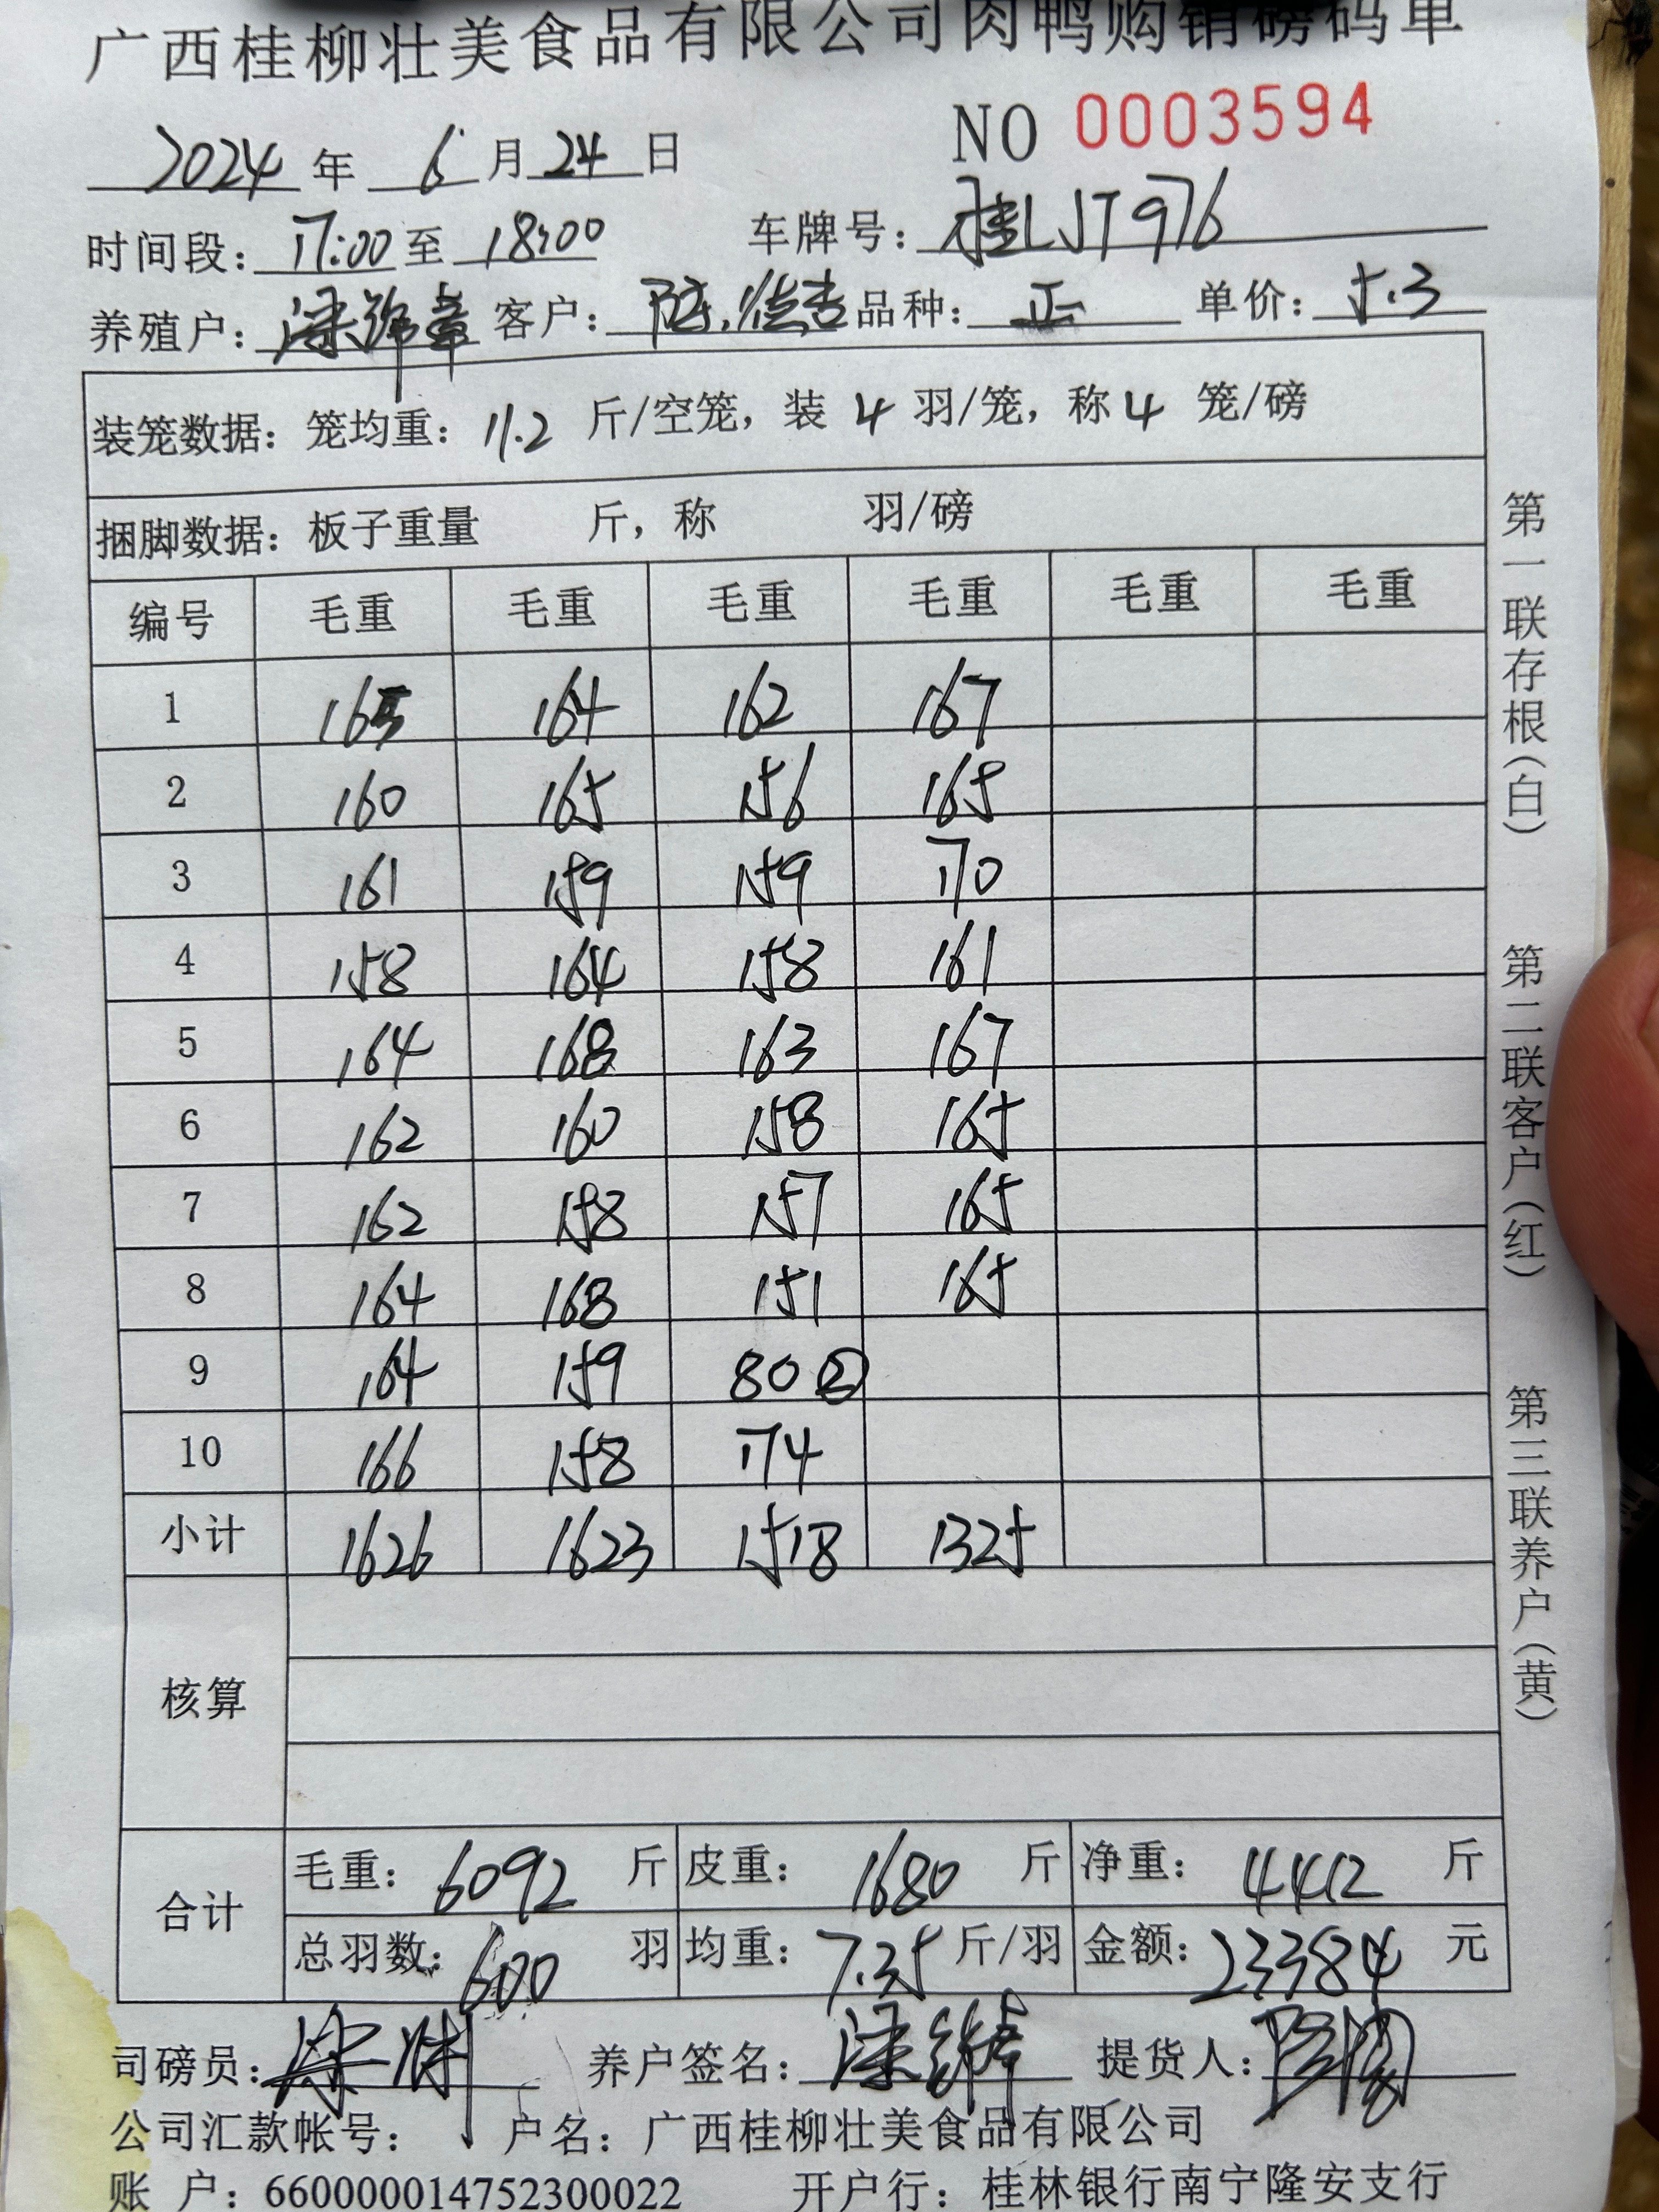 广西桂柳壮美食品有限公司肉鸭购销磅码单
NO 0003594
2024 年 6 月 24 日
时间段: 17:00 至 18:00 车牌号: 桂LJT976
养殖户: 客户: 品种: 正 单价: 5.3
装笼数据: 笼均重: 11.2 斤/空笼, 装 4 羽/笼, 称 4 笼/磅
捆脚数据: 板子重量 斤, 称 羽/磅
编号 毛重 毛重 毛重 毛重 毛重 毛重
1 165 164 162 167
2 160 165 156 165
3 161 159 159 170
4 158 164 158 161
5 164 168 163 167
6 162 160 158 165
7 162 158 157 165
8 164 168 151 165
9 164 159 80 ②
10 166 158 174
小计 1626 1623 1518 1325
核算
合计 毛重: 6092 斤 皮重: 1680 斤 净重: 4412 斤
总羽数: 600 羽 均重: 7.35 斤/羽 金额: 23384 元
司磅员: 养户签名: 提货人:
公司汇款帐号: 户名: 广西桂柳壮美食品有限公司
账 户: 660000014752300022 开户行: 桂林银行南宁隆安支行
第一联存根(白) 第二联客户(红) 第三联养户(黄)